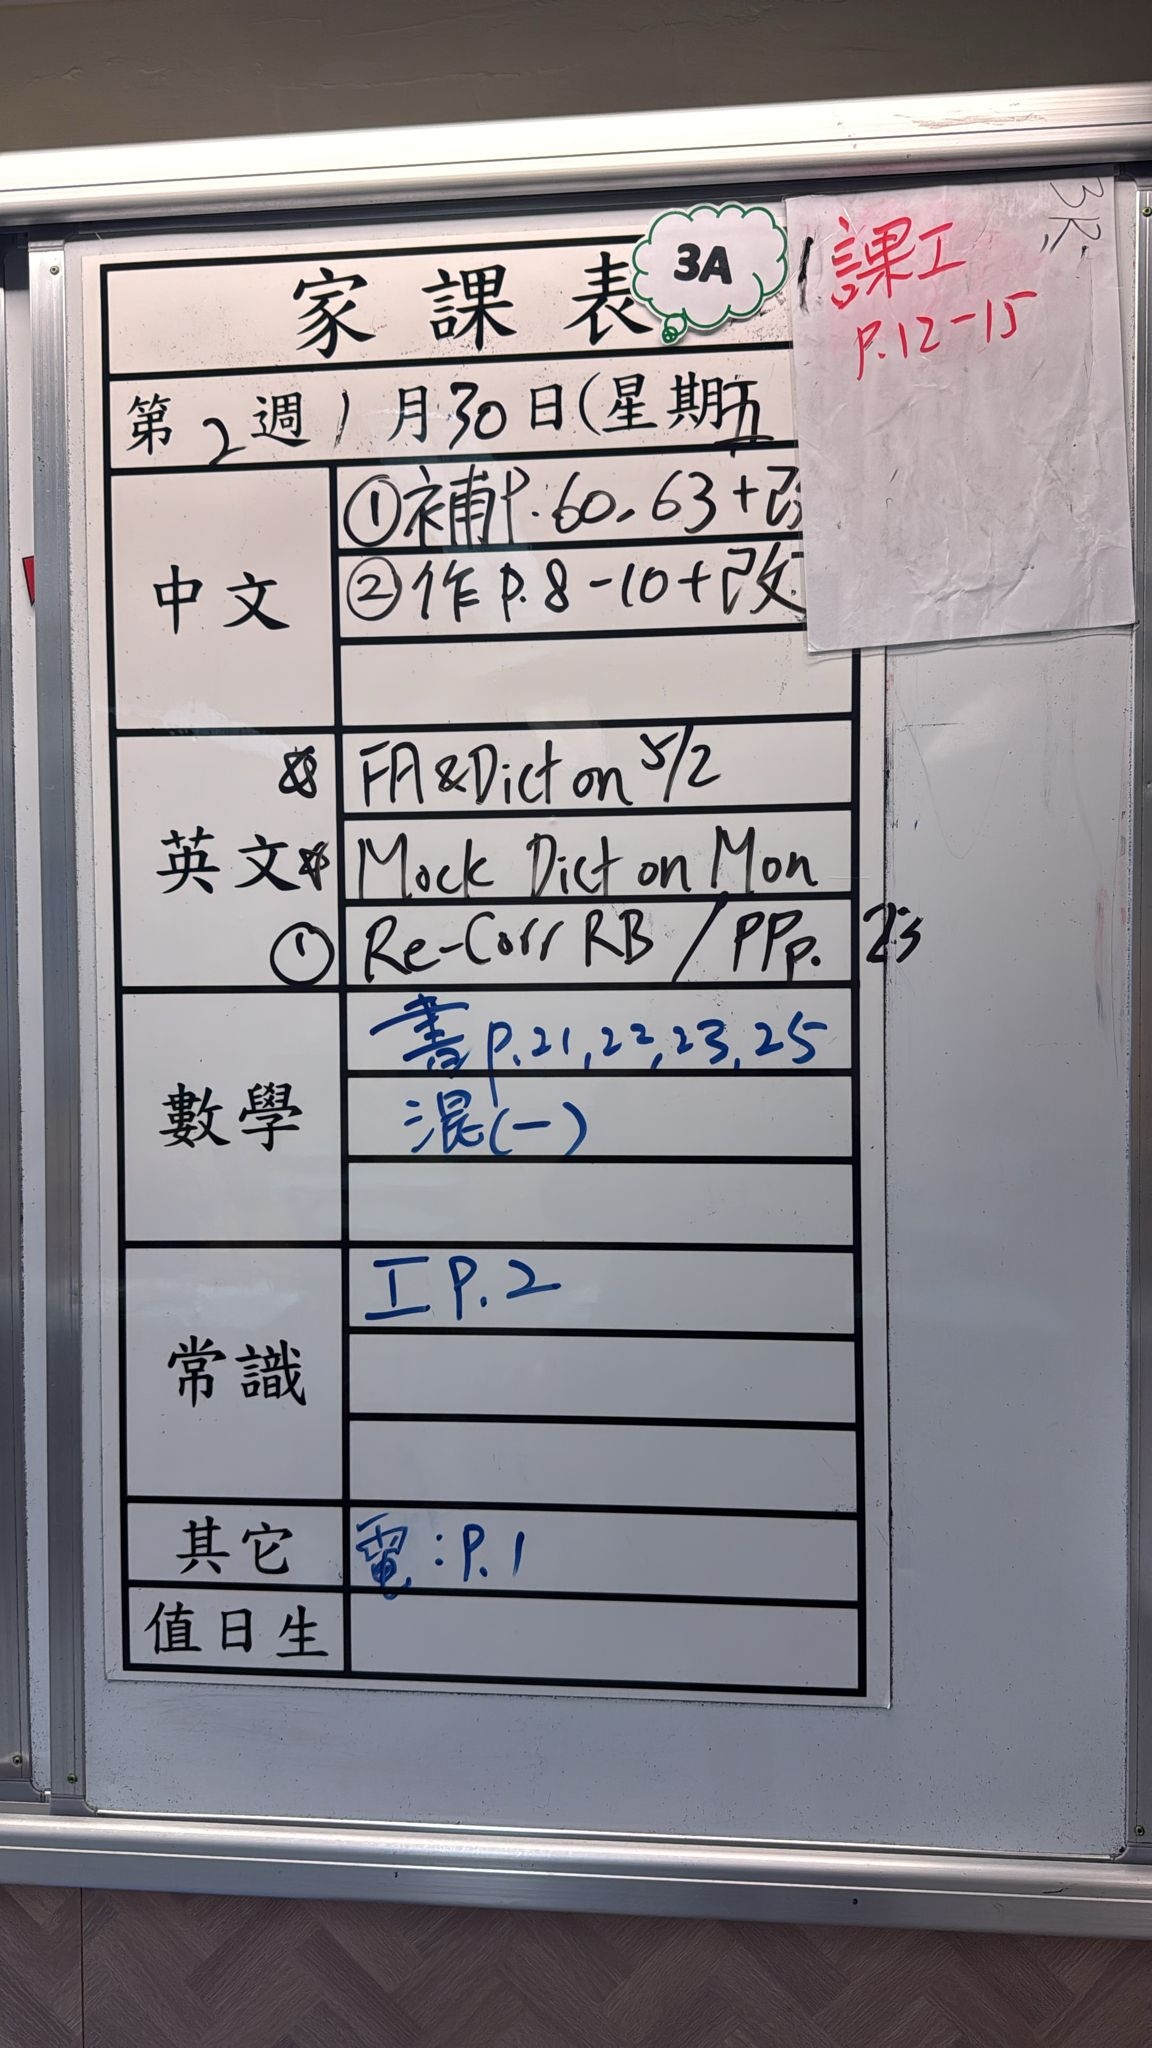 家課表
3A
3R
課工
P.12-15
第2週1月30日(星期五
中文
①補P.60、63+改
②作P.8-10+改
英文
* FA & Dict on 5/2
* Mock Dict on Mon
① Re-Corr RB / PP p.
數學
書P.21,22,23,25
混(一)
常識
工P.2
其它
電:P.1
值日生